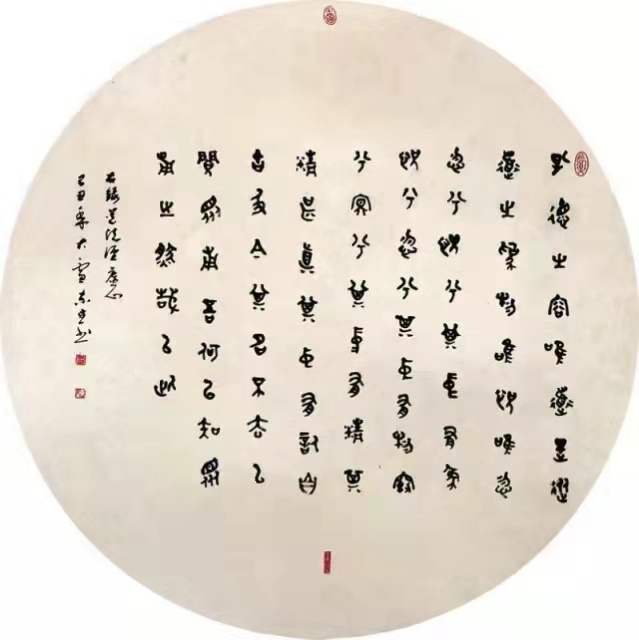 孔德之容唯道是從
道之爲物唯恍唯忽
忽兮恍兮其中有象
恍兮忽兮其中有物窈
兮冥兮其中有精其
精甚真其中有信自
古及今其名不去以
閱衆甫吾何以知衆
甫之然哉以此
右錄道德經虛心
己丑年大雪